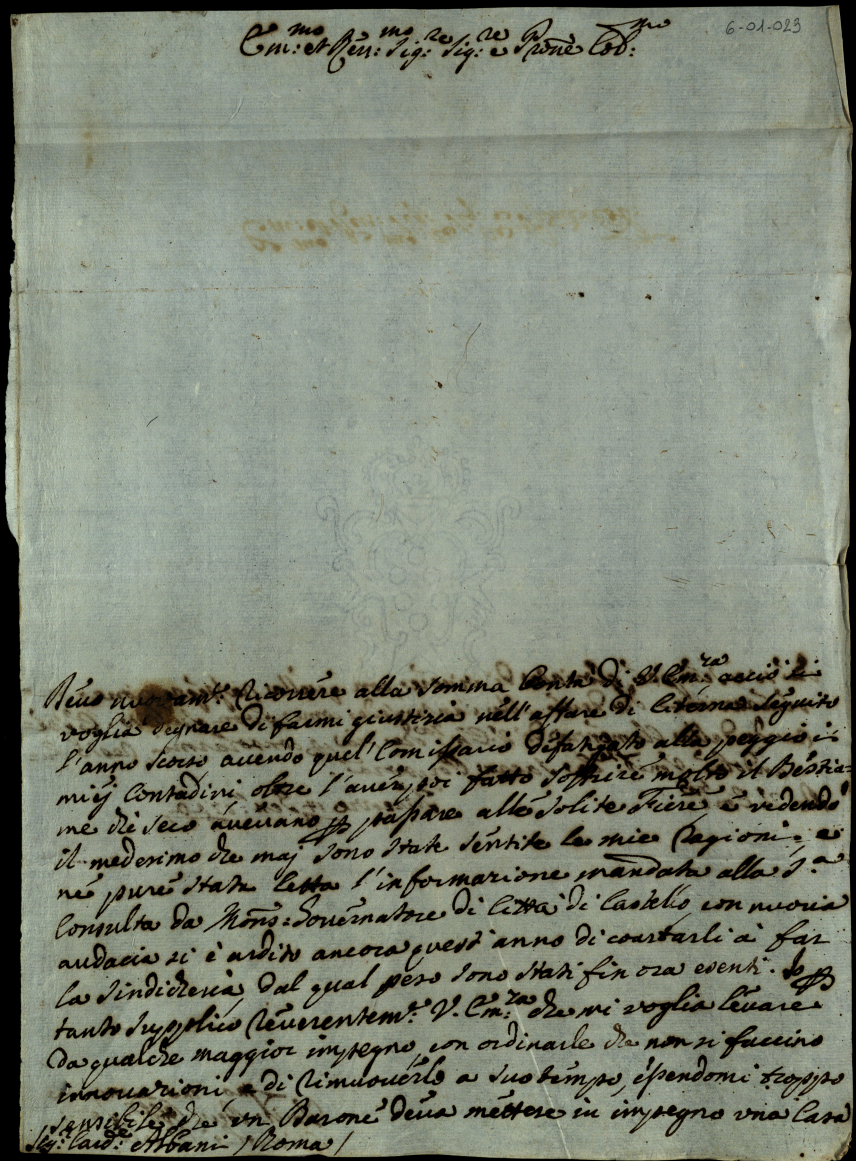 6-01-023
Em:mo et Rev:mo Sig:re Sig:re e Prone Col:mo
Devo nuovam:te ricorrere alla somma bontà di V. Em:za acciò si
voglia degnare di farmi giustizia nell'affare di Citerna seguito
l'anno scorso avendo quel Comissario alla peggio i
miej Contadini oltre l'aver poi fatto soffrire molto il Bestia=
me che seco avevano p passare alle solite Fiere, e vedendo
il medesimo che maj sono state sentite le mie ragioni, e
ne pure stata letta l'informazione mandata alla S.a
Consulta da Mons: Governatore di Città di Castello con nuova
audacia si è ardito ancora quest'anno di coartarli a far
la Sindicheria, dal qual peso sono stati fin ora esenti. Io p
tanto supplico reverentem:te V. Em:za che mi voglia levare
da qualche maggior impegno, con ordinarle che non si faccino
innovazioni, e di rimuoverlo a suo tempo, essendomi troppo
sensibile che un Barone deva mettere in impegno una Casa
Sig: Card:le Albani / Roma /